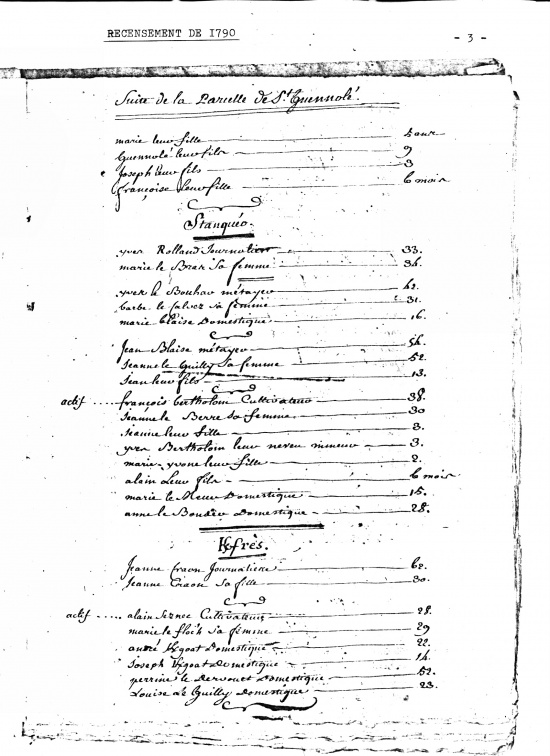 RECENSEMENT DE 1790 - 3 -
Suite de la Parcelle de St Guennolé.
marie leur fille 5 ans
Guennolé leur fils 9
Joseph leur fils 3
françoise leur fille 6 mois
Stanquéo.
yves Rolland Journalier 33.
marie le Braz Sa femme 34.
yves le métayer 42.
barbe le calvez sa femme 31.
marie blaise Domestique 16.
Jean Blaise métayer 54.
Jeanne le Guilly Sa femme 52.
Jean leur fils 13.
actif ..... françois bertholom Cultivateur 38.
Jeanne le Berre sa femme 30
Jeanne leur fille 3.
yves Bertholom leur neveu mineur 3.
marie yvone leur fille 2.
alain leur fils 6 mois
marie le Domestique 15.
anne le Domestique 28.
Kfrès.
Jeanne Journalière 62.
Jeanne Sa fille 30.
actif ..... alain Seznec Cultivateur 28.
marie le floch sa femme 29
andré Kgoat Domestique 22.
Joseph Kgoat Domestique 14.
perrine le Domestique 52.
Louise Le Guilly Domestique 23.